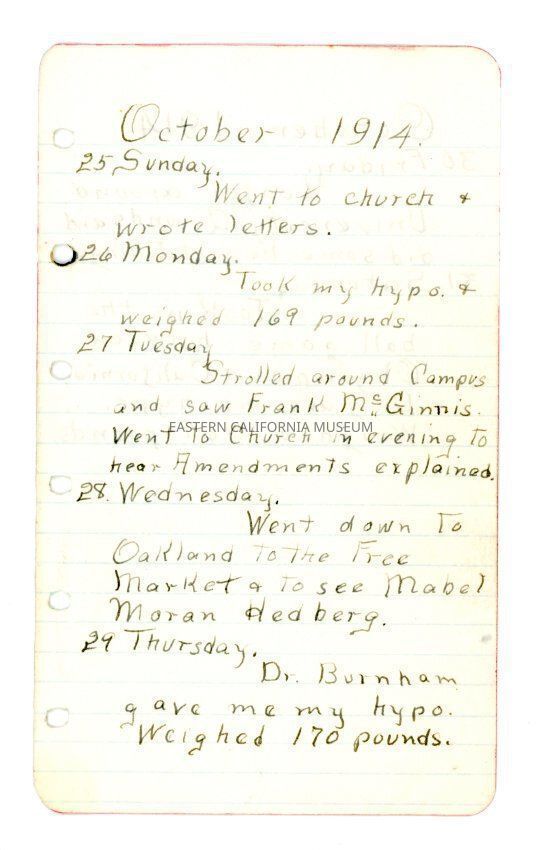 October 1914.
25 Sunday.
Went to church &
wrote letters.
26 Monday.
Took my hypo. &
weighed 169 pounds.
27 Tuesday
Strolled around Campus
and saw Frank McGinnis.
EASTERN CALIFORNIA MUSEUM
Went to Church in evening to
hear Amendments explained.
28. Wednesday.
Went down to
Oakland to the Free
Market & to see Mabel
Moran Hedberg.
29 Thursday.
Dr. Burnham
gave me my hypo.
Weighed 170 pounds.